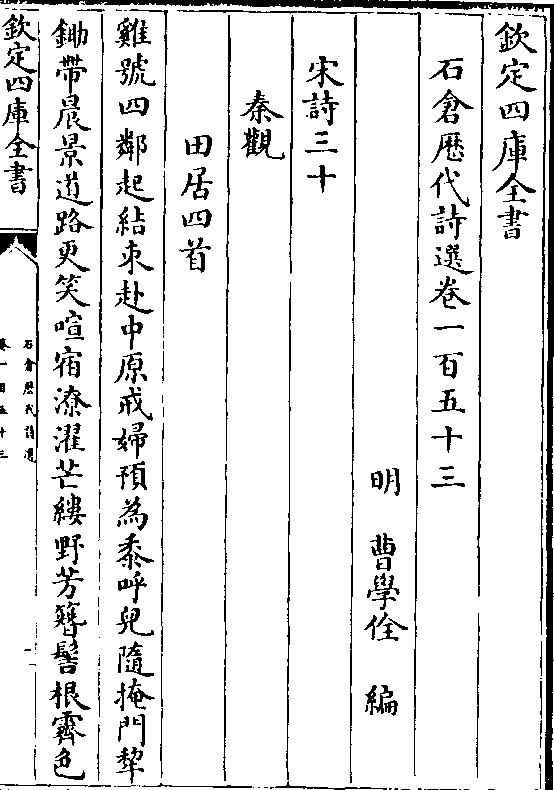 欽定四庫全書
石倉歷代詩選卷一百五十三
明 曹學佺 編
宋詩三十
秦觀
田居四首
雞號四鄰起結束赴中原戒婦預為黍呼兒隨掩門犂
鋤帶晨景道路更笑喧宿潦濯芒縷野芳簪髻根霽色
欽定四庫全書
石倉歷代詩選
卷一百五十三
一